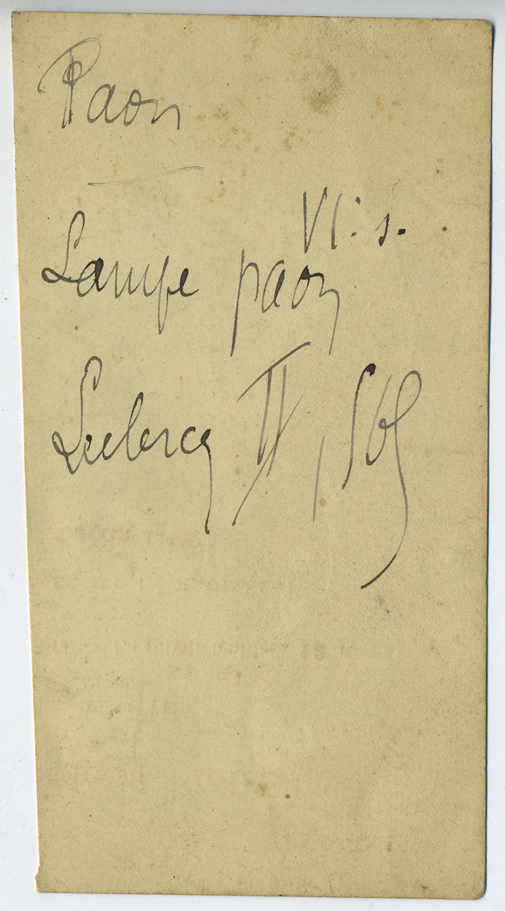 Paon
VIe s.
Lampe paon
Leclercq II, 569